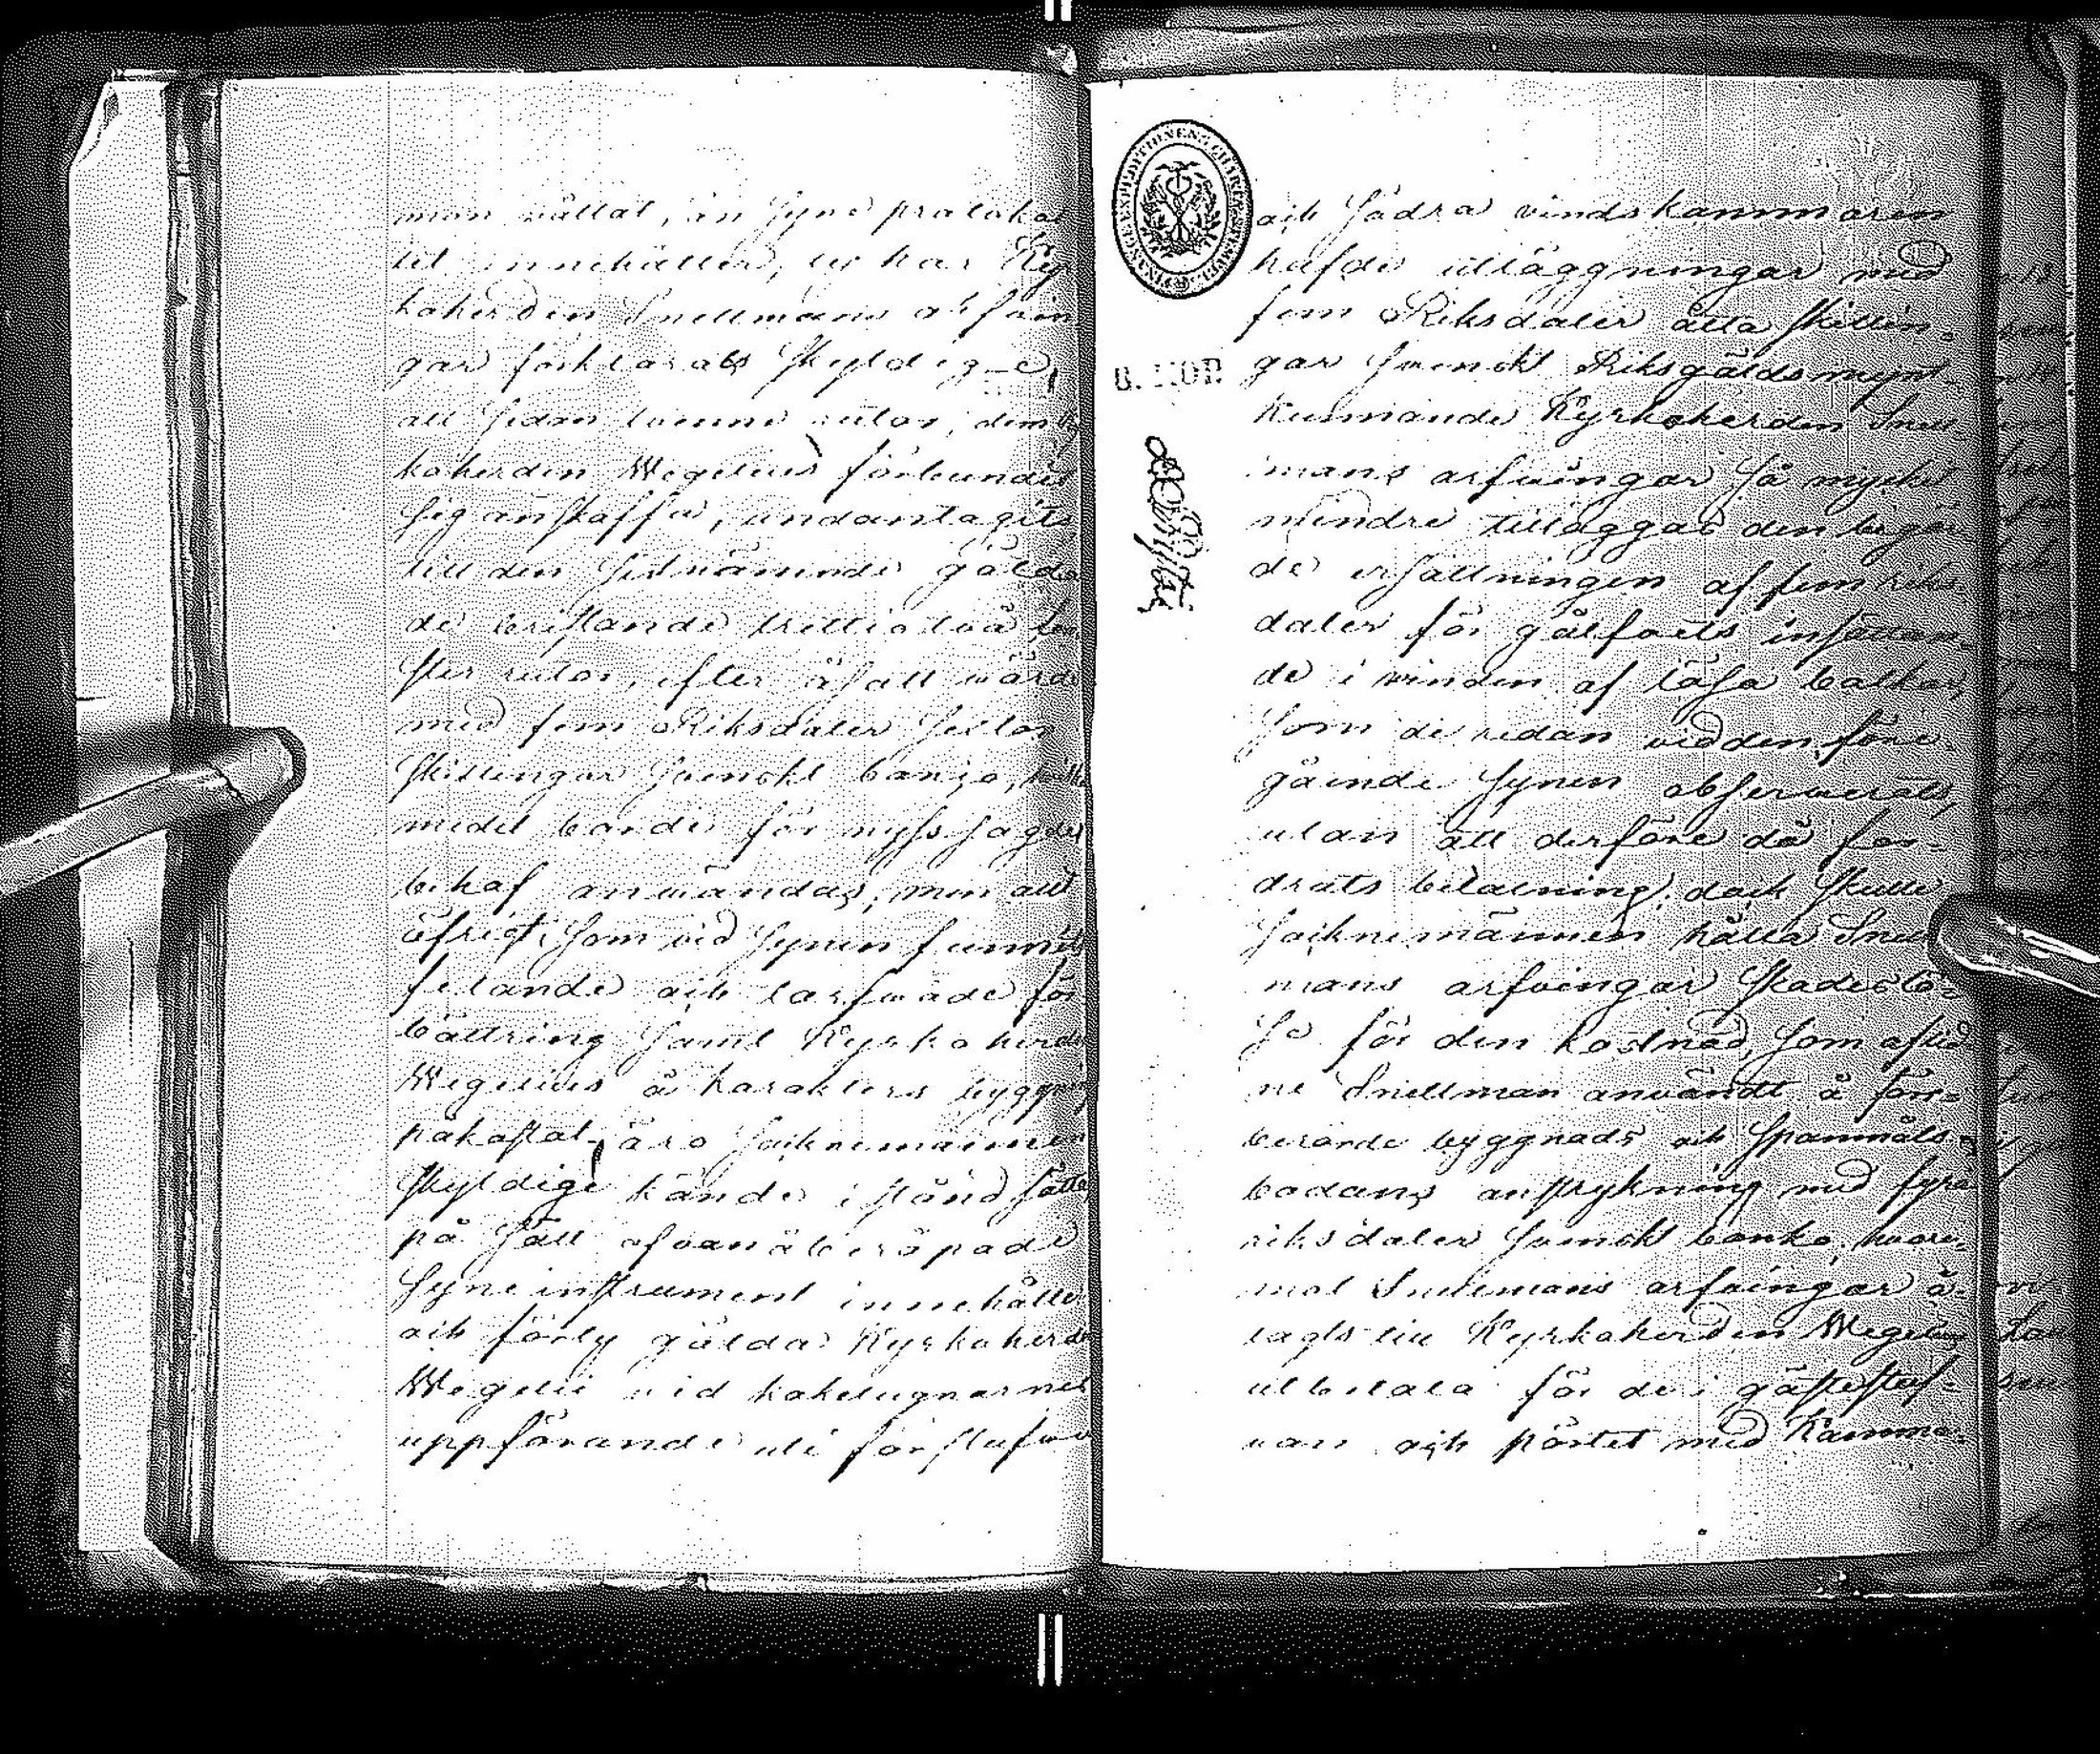 man vållat, än Syne protokol
let innehåller, ty har Kyr
koherden Snellmans arfvin
gar förklarats Skyldige,
att Sedan tvenne rutor, dem Ky
koherden Wegelius förbundit
Sig anskaffa, undantagits
till den Sistnämnde gälda
de bristande trettiotvå fen
ster rutor, efter åsatt värde
med fem Riksdaler Sexton
Skillingar Svenskt banco,
medel borde för nyss Sagde
behof användas; men allt
öfrigt, Som vid Synen funnits
felande och tarfvade för
bättring Samt Kyrkoherde
Wegelius å karakters byggning
påkostat, äro Socknemännen
Skyldige kände i stånd Sätta
på Sätt ofvanåberopade
Syneinstrument innehåller
och förty gälda Kyrkoherde
Wegelii vid kakelugnarnes
uppförande uti förstufvu
och Södra vindskammaren
hafde utläggningar med
fem Riksdaler åtta Skillin-
gar Svenskt Riksgäldsmynt
kunnande Kyrkoherden Snell
mans arfvingar Så mycket
mindre tilläggas den begär
de ersättningen af fem riks-
daler för golfvets insättan-
de i vinden af lösa balkar,
Som de redan vid den före-
gående Synen observerats,
utan att derföre då for-
drats betalning; dock Skulle
Socknemännen hålla Snell
mans arfvingar Skadeslö-
Se för den kostnad, Som aflid
ne Snellman användt å för-
berörde byggnads och Spanmåls
bodans anstrykning med fyra
riksdaler Svenskt banko, hvare-
mot Snellmans arfvingar å-
lagts till Kyrkoherden Wegelius
utbetala för de i gästestuf-
van och pörtet med Kamma-